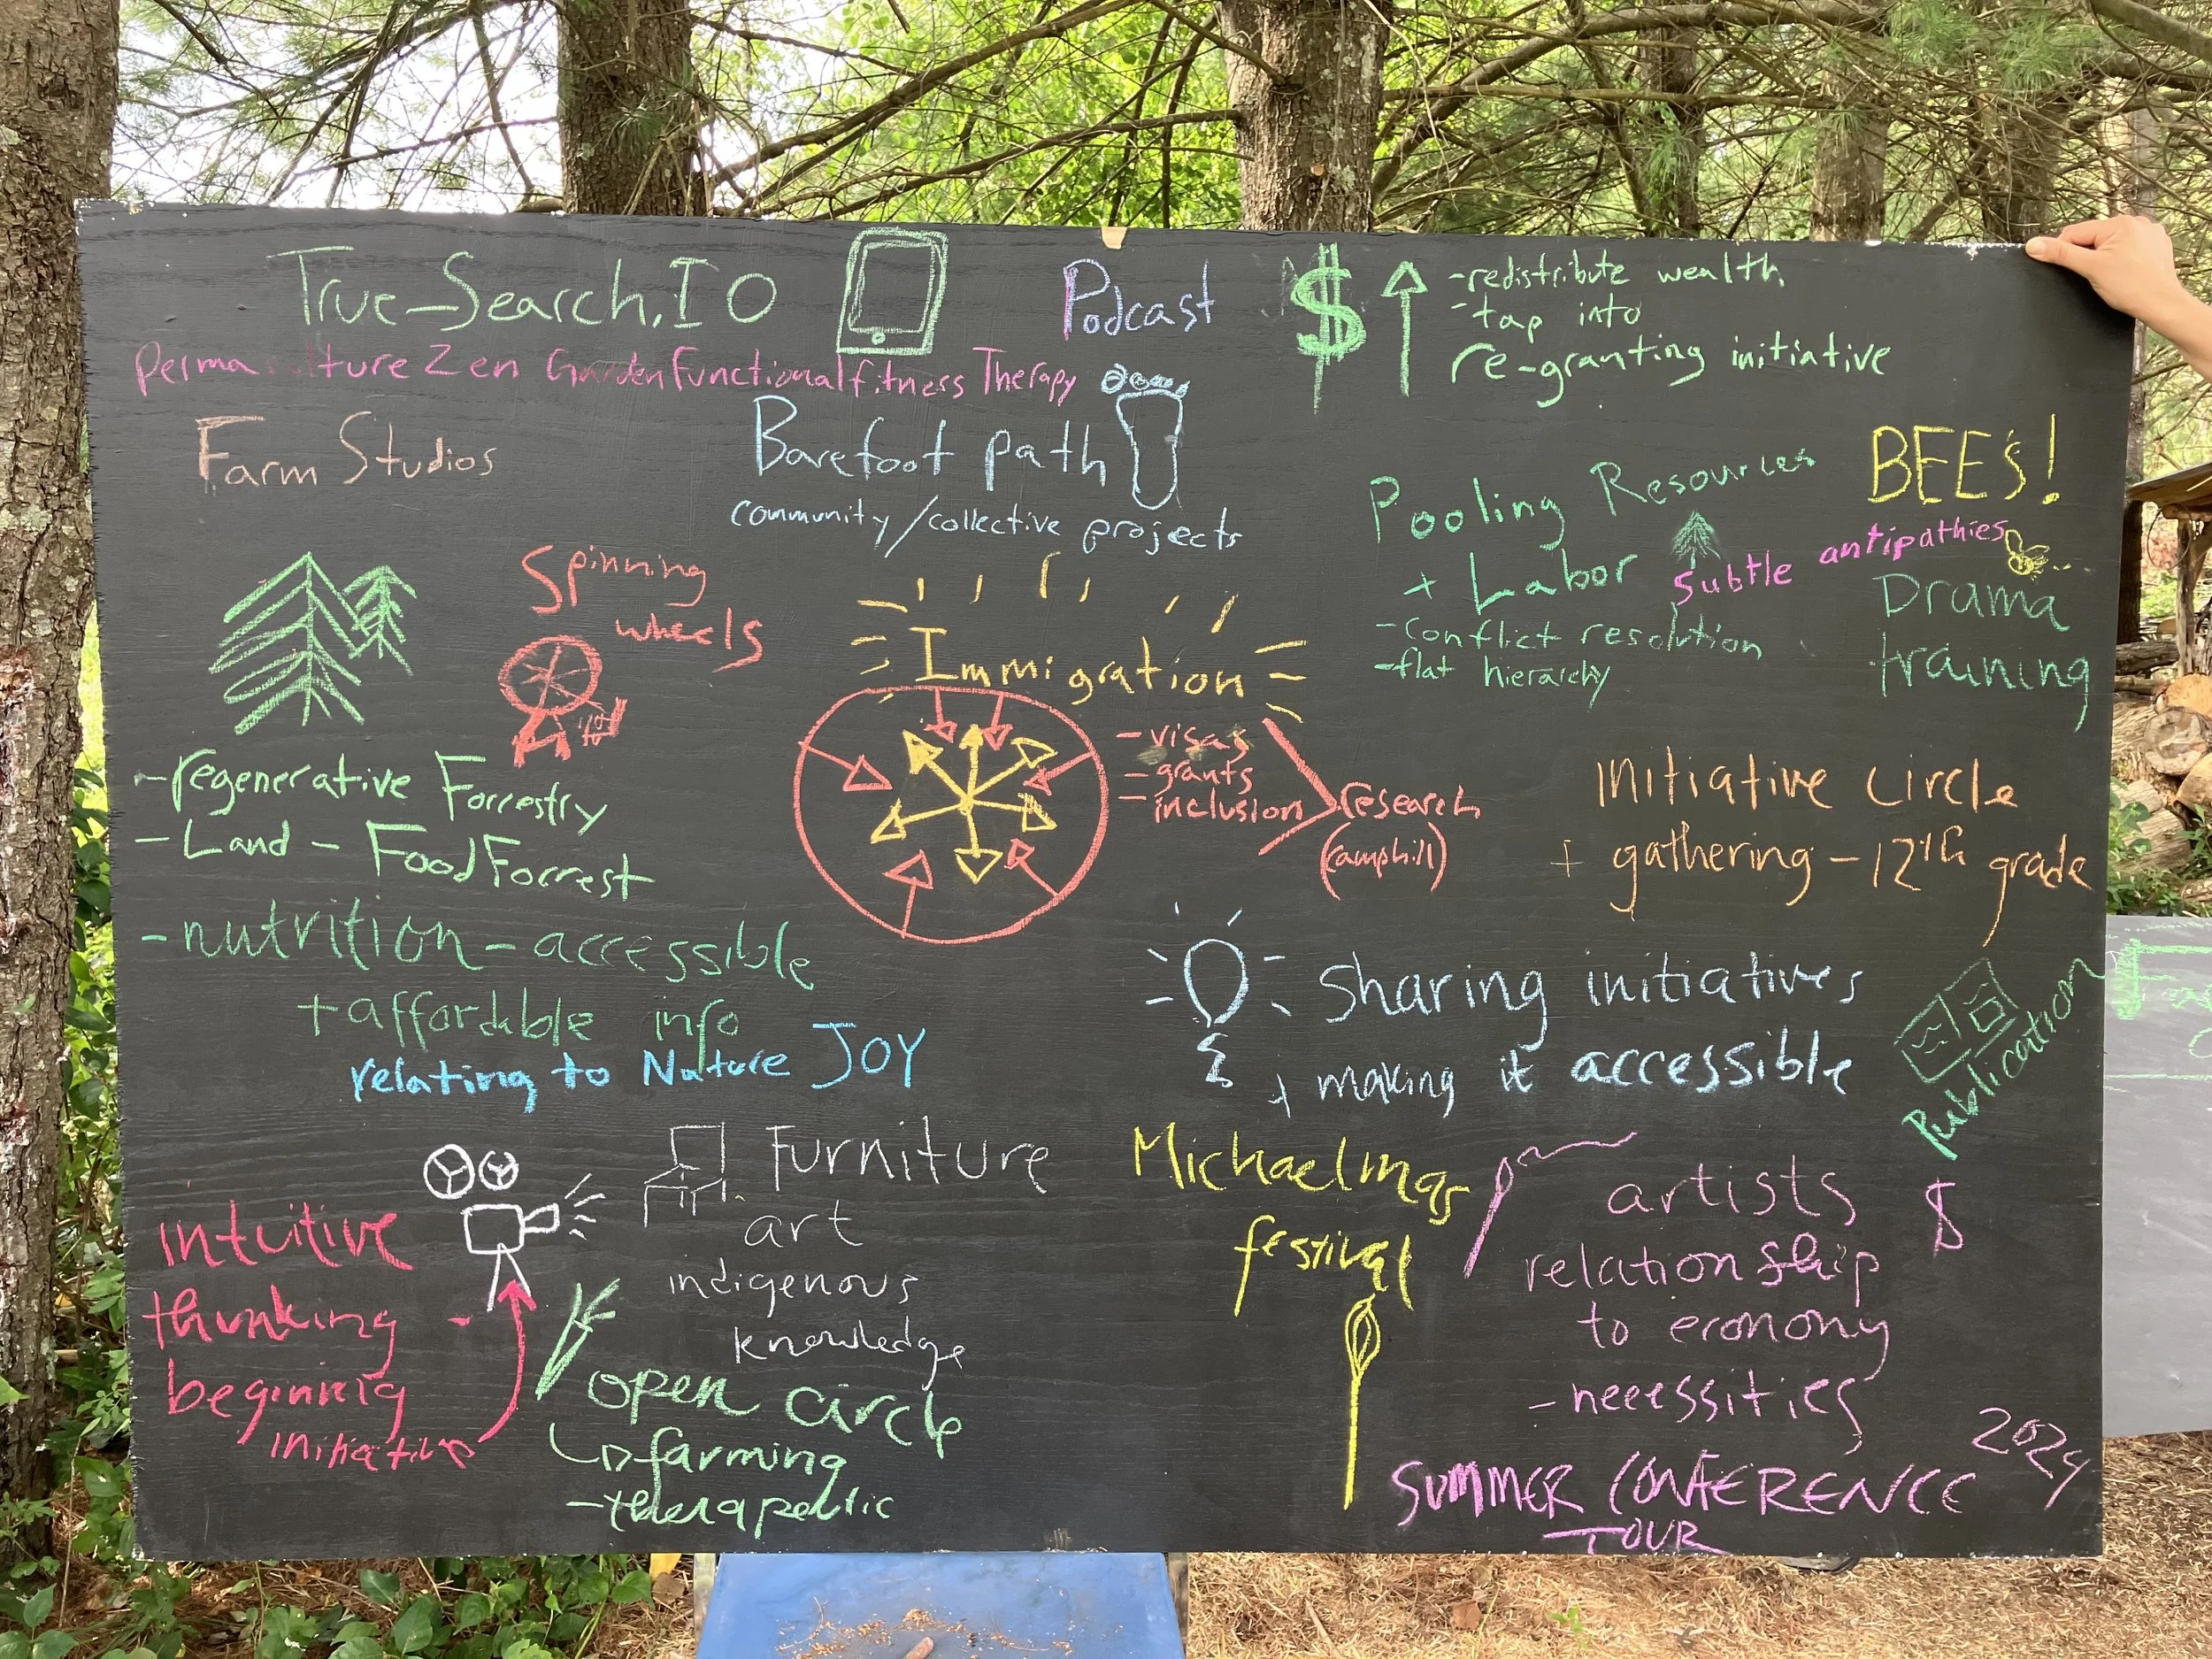 True-Search.IO
Podcast
$
-redistribute wealth
-tap into
re-granting initiative
Permaculture Zen Garden Functional fitness Therapy
Farm Studios
Barefoot path
community/collective projects
Pooling Resources
+ Labor
-conflict resolution
-flat hierarchy
BEES!
Subtle antipathies
Drama
training
Spinning
wheels
Immigration
- visas
- grants
- inclusion
research
(camphill)
-regenerative Forrestry
-Land - Food Forrest
-nutrition-accessible
+affordable info
relating to Nature JOY
initiative circle
+ gathering - 12th grade
Sharing initiatives
+ making it accessible
Publication
intuitive
thinking -
beginning
initiative
Furniture
art
indigenous
knowledge
open circle
farming
-therapeutic
Michaelmas
festival
artists
relationship
to economy
- necessities
$
SUMMER CONFERENCE
TOUR
2024